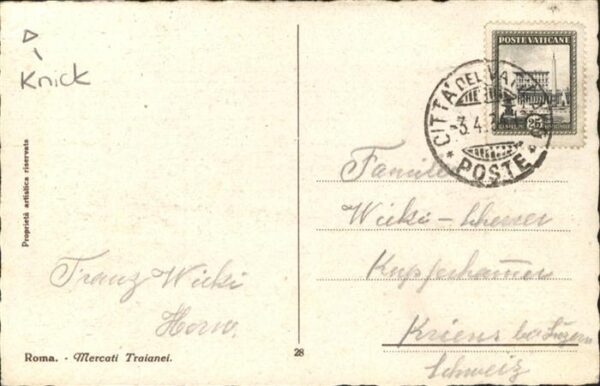 Knick
POSTE VATICANE
CITTÀ DEL VATICANO
-3.4.3
POSTE
25
Proprietà artistica riservata
Familie
Wicki-
Kupferhammer
Kriens bei Luzern
Schweiz
Franz Wicki
Horw.
Roma. - Mercati Traianei.
28